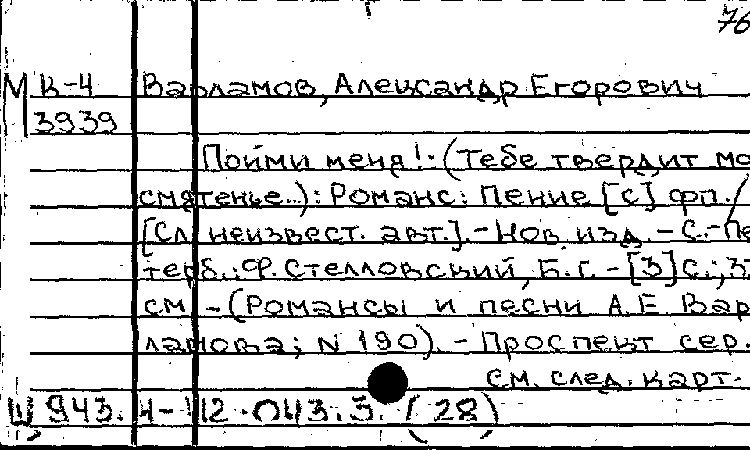 76
М К-4 Варламов, Александр Егорович
3939
Пойми меня!.. (Тебе твердит мо
смятенье..): Романс: Пение [с] фп. /
[Сл. неизвест. авт.]. - Нов. изд. - С.-Пе
терб.: Ф. Стелловский, Б.г. - [3] с.; 3
см - (Романсы и песни А.Е. Вар
ламова; N 190). - Проспект сер.
см. след. карт.
Ц 943. 4-112.